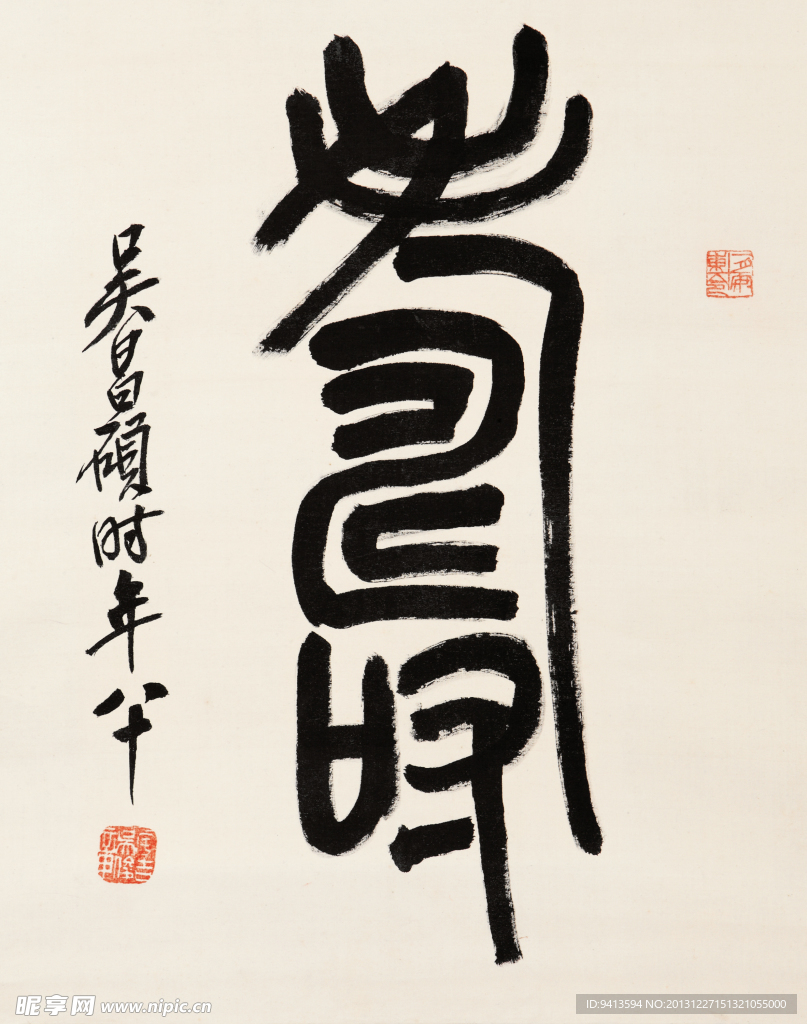 壽
吴昌碩时年八十
昵享网 www.nipic.cn
ID:9413594 NO:20131227151321055000